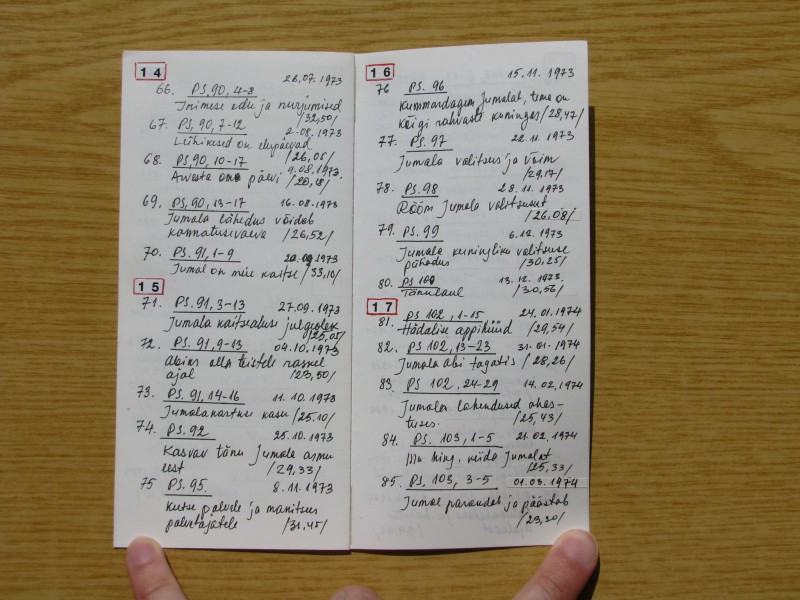 14
28.07.1973
66. PS. 90, 4-8
Inimese edu ja nurjumised
/32,50/
67. PS, 90, 7-12 2.08.1973
Lühikesed on elupäevad
/26,05/
68. PS, 90, 10-17 9.08.1973.
Arvesta oma päevi /20,18/
69. PS, 90, 13-17 16.08.1973
Jumala lähedus võidab
kannatusevaeva /26,52/
70. PS. 91, 1-9 20.09.1973
Jumal on meie kaitse /33,10/
15
71. PS. 91, 3-13 27.09.1973
Jumala kaitsealuse julgeolek
/25,05/
72. PS. 91, 9-13 04.10.1973
Abiks olla teistele raskel
ajal /23,50/
73. PS. 91, 14-16 11.10.1973
Jumalakartuse kasu /25.10/
74. PS. 92 25.10.1973
Kasvav tänu Jumala armu
eest /29,33/
75 PS. 95. 8.11.1973
Kutse palvele ja manitsus
palvetajatele /31,45/
16
15.11.1973
76 PS. 96
Kummardagem Jumalat, tema on
kõigi rahvaste kuningas /28,47/
77. PS. 97 22.11.1973
Jumala valitsus ja võim
/29,17/
78. PS. 98 28.11.1973
Rõõm Jumala valitsusest
/26.08/
79. PS. 99 6.12.1973
Jumala kuningliku valitsuse
pühadus /30,25/
80. PS 100 13.12.1973.
Tänulaul /30,56/
17
81. PS 102, 1-15 24.01.1974
Hädalise appihüüd /29,54/
82. PS 102, 13-23 31.01.1974
Jumala abi tagatis /28,26/
83 PS 102, 24-29 14.02.1974
Jumala lahendused ahas-
tuses. /25,43/
84. PS. 103, 1-5 21.02.1974
Mu hing, kiida Jumalat
/25,33/
85. PS, 103, 3-5 01.03.1974
Jumal parandab ja päästab
/23,30/